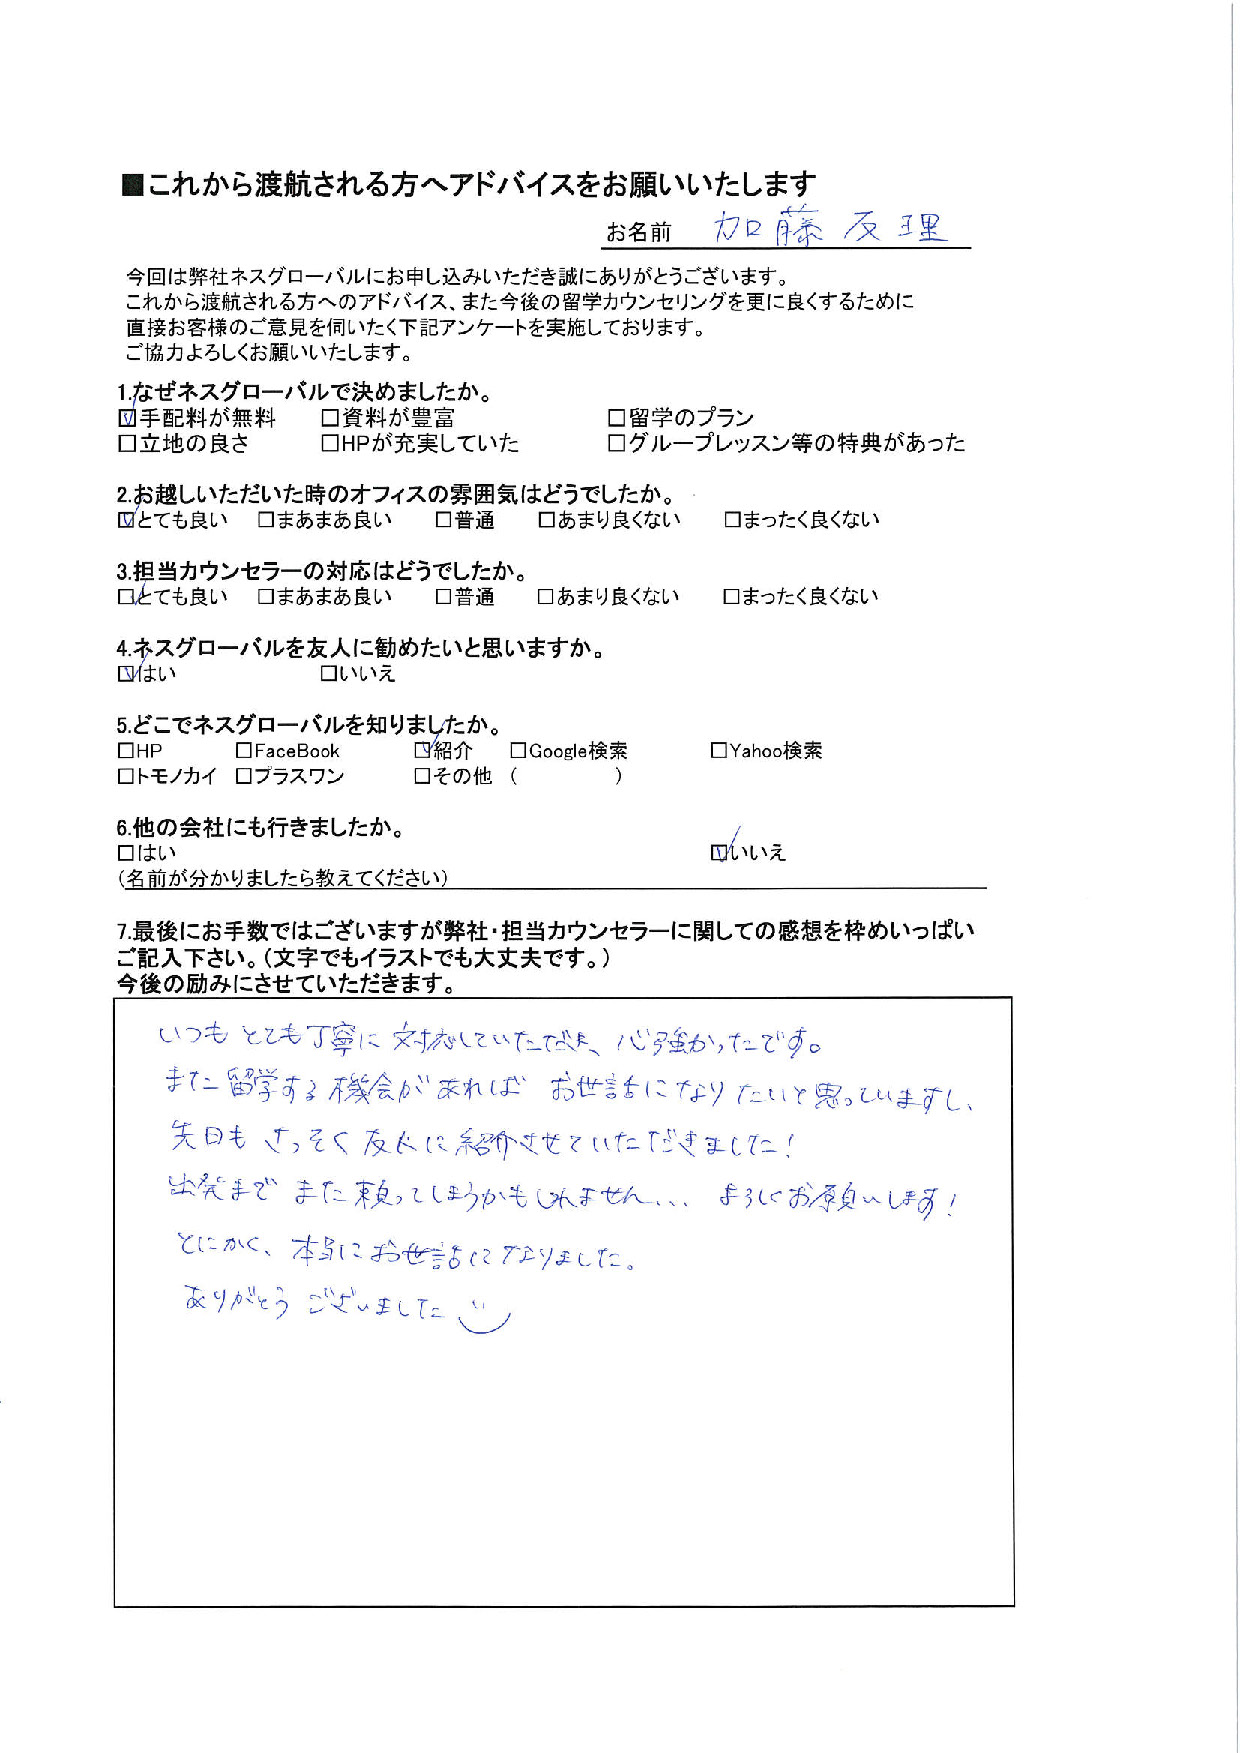 ■これから渡航される方へアドバイスをお願いいたします
お名前 加藤 友理
今回は弊社ネスグローバルにお申し込みいただき誠にありがとうございます。
これから渡航される方へのアドバイス、また今後の留学カウンセリングを更に良くするために
直接お客様のご意見を伺いたく下記アンケートを実施しております。
ご協力よろしくお願いいたします。
1.なぜネスグローバルで決めましたか。
☑手配料が無料 □資料が豊富 □留学のプラン
□立地の良さ □HPが充実していた □グループレッスン等の特典があった
2.お越しいただいた時のオフィスの雰囲気はどうでしたか。
☑とても良い □まあまあ良い □普通 □あまり良くない □まったく良くない
3.担当カウンセラーの対応はどうでしたか。
☑とても良い □まあまあ良い □普通 □あまり良くない □まったく良くない
4.ネスグローバルを友人に勧めたいと思いますか。
☑はい □いいえ
5.どこでネスグローバルを知りましたか。
□HP □FaceBook ☑紹介 □Google検索 □Yahoo検索
□トモノカイ □プラスワン □その他 （ ）
6.他の会社にも行きましたか。
□はい ☑いいえ
（名前が分かりましたら教えてください）
7.最後にお手数ではございますが弊社・担当カウンセラーに関しての感想を枠めいっぱい
ご記入下さい。（文字でもイラストでも大丈夫です。）
今後の励みにさせていただきます。
いつも とても丁寧に 対応していただき、心強かったです。
また 留学する 機会が あれば お世話に なり たいと 思っていますし、
先日も さっそく 友人に 紹介させていただきました!
出発まで また 頼ってしまうかもしれません、、、 よろしくお願いします!
とにかく、本当に お世話に なりました。
ありがとう ございました